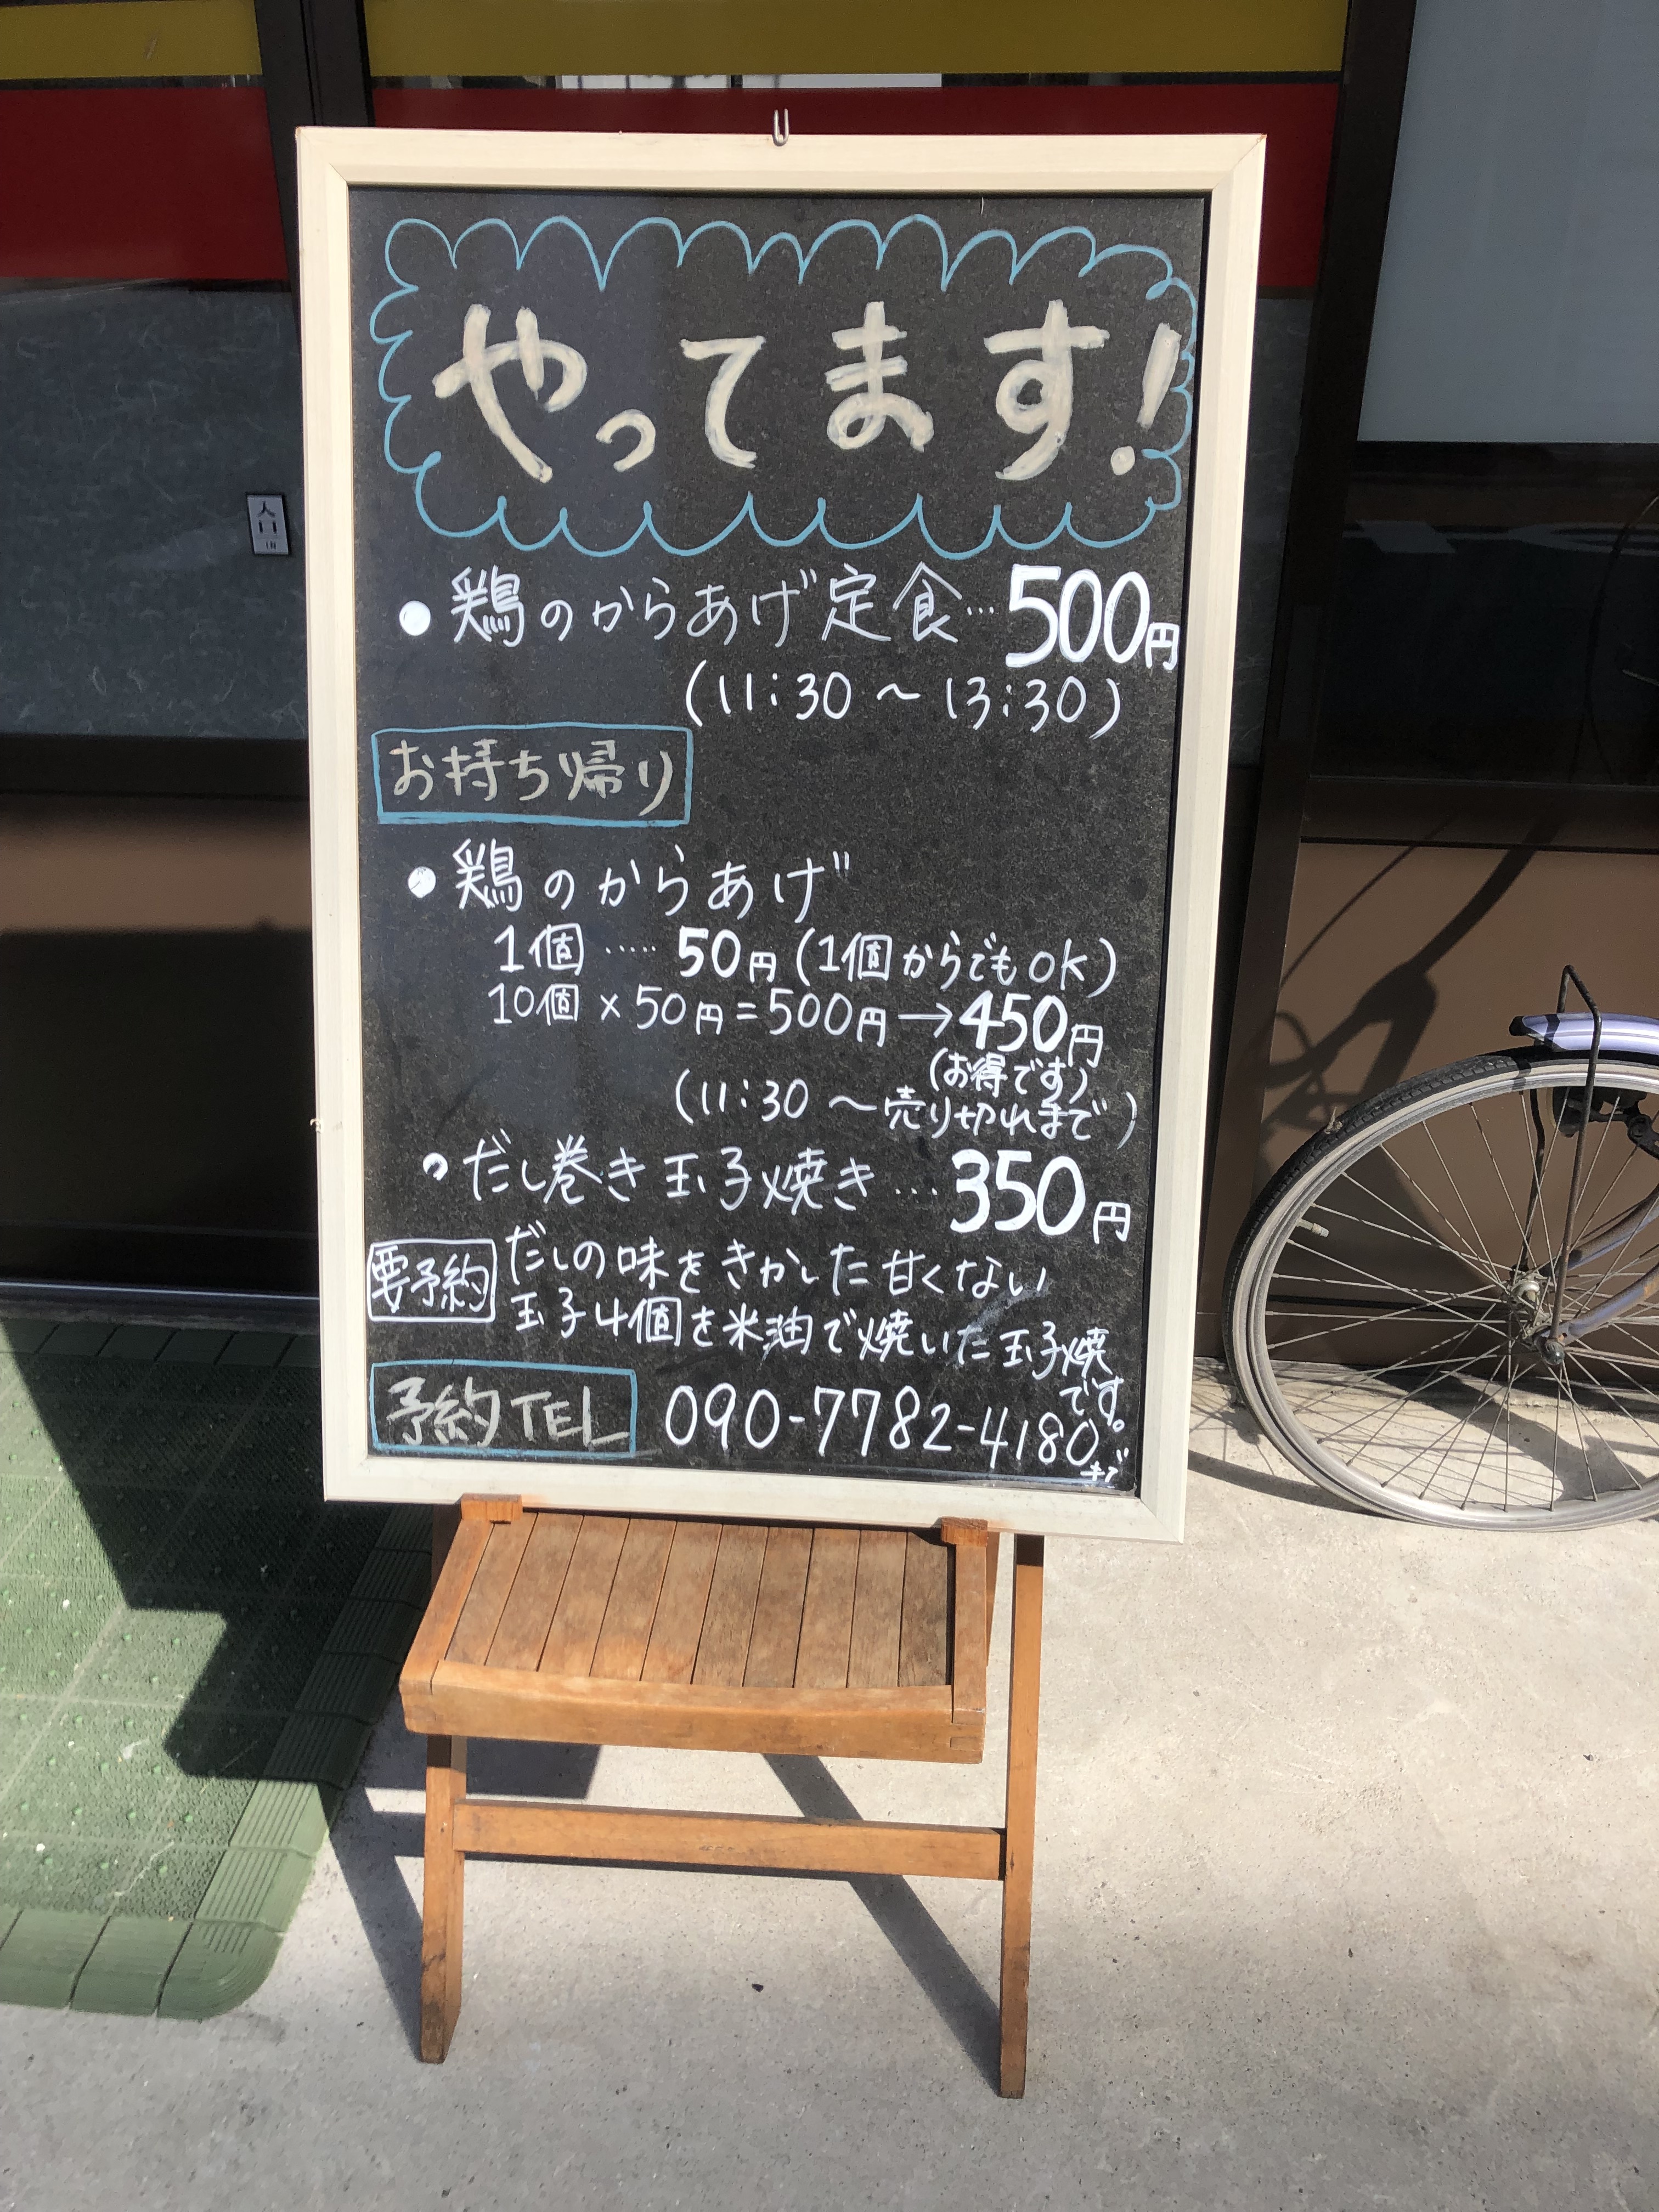 やってます!
●鶏のからあげ定食…500円
(11:30～13:30)
お持ち帰り
●鶏のからあげ
1個……50円(1個からでもOK)
10個×50円=500円→450円
(お得です)
(11:30～売り切れまで)
●だし巻き玉子焼き…350円
要予約
だしの味をきかした甘くない
玉子4個を米油で焼いた玉子焼
です。
予約TEL 090-7782-4180まで
入口